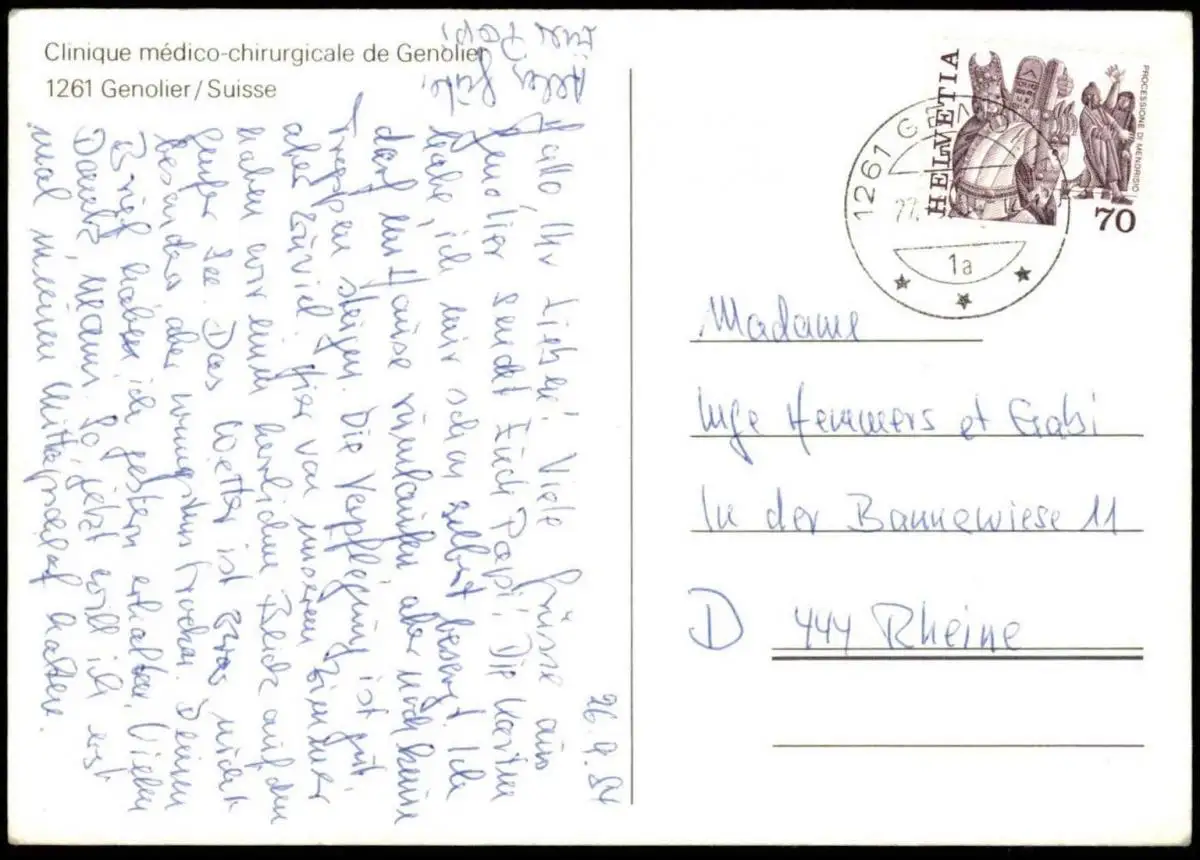 Clinique médico-chirurgicale de Genolier
1261 Genolier/Suisse
26.9.84
Hallo, Ihr Lieben! Viele Grüsse aus
Genolier sendet Euch Papi. Die Karten
habe ich mir schon selbst besorgt. Ich
darf im Hause rumlaufen aber noch keine
Treppen steigen. Die Verpflegung ist gut
aber zuviel. Hier von unserem Zimmer
haben wir einen herrlichen Blick auf den
Genfer See. Das Wetter ist zwar nicht
besonders aber wenigstens trocken. Deinen
Brief haben ich gestern erhalten. Vielen
Dank, Mami. So, jetzt will ich erst
mal meinen Mittagsschlaf halten.
Euer Papi
HELVETIA
PROCESSIONE DI MENDRISIO
70
1261
27.
1a
Madame
Inge Hemmers et Gabi
In der Bannewiese 11
D 444 Rheine